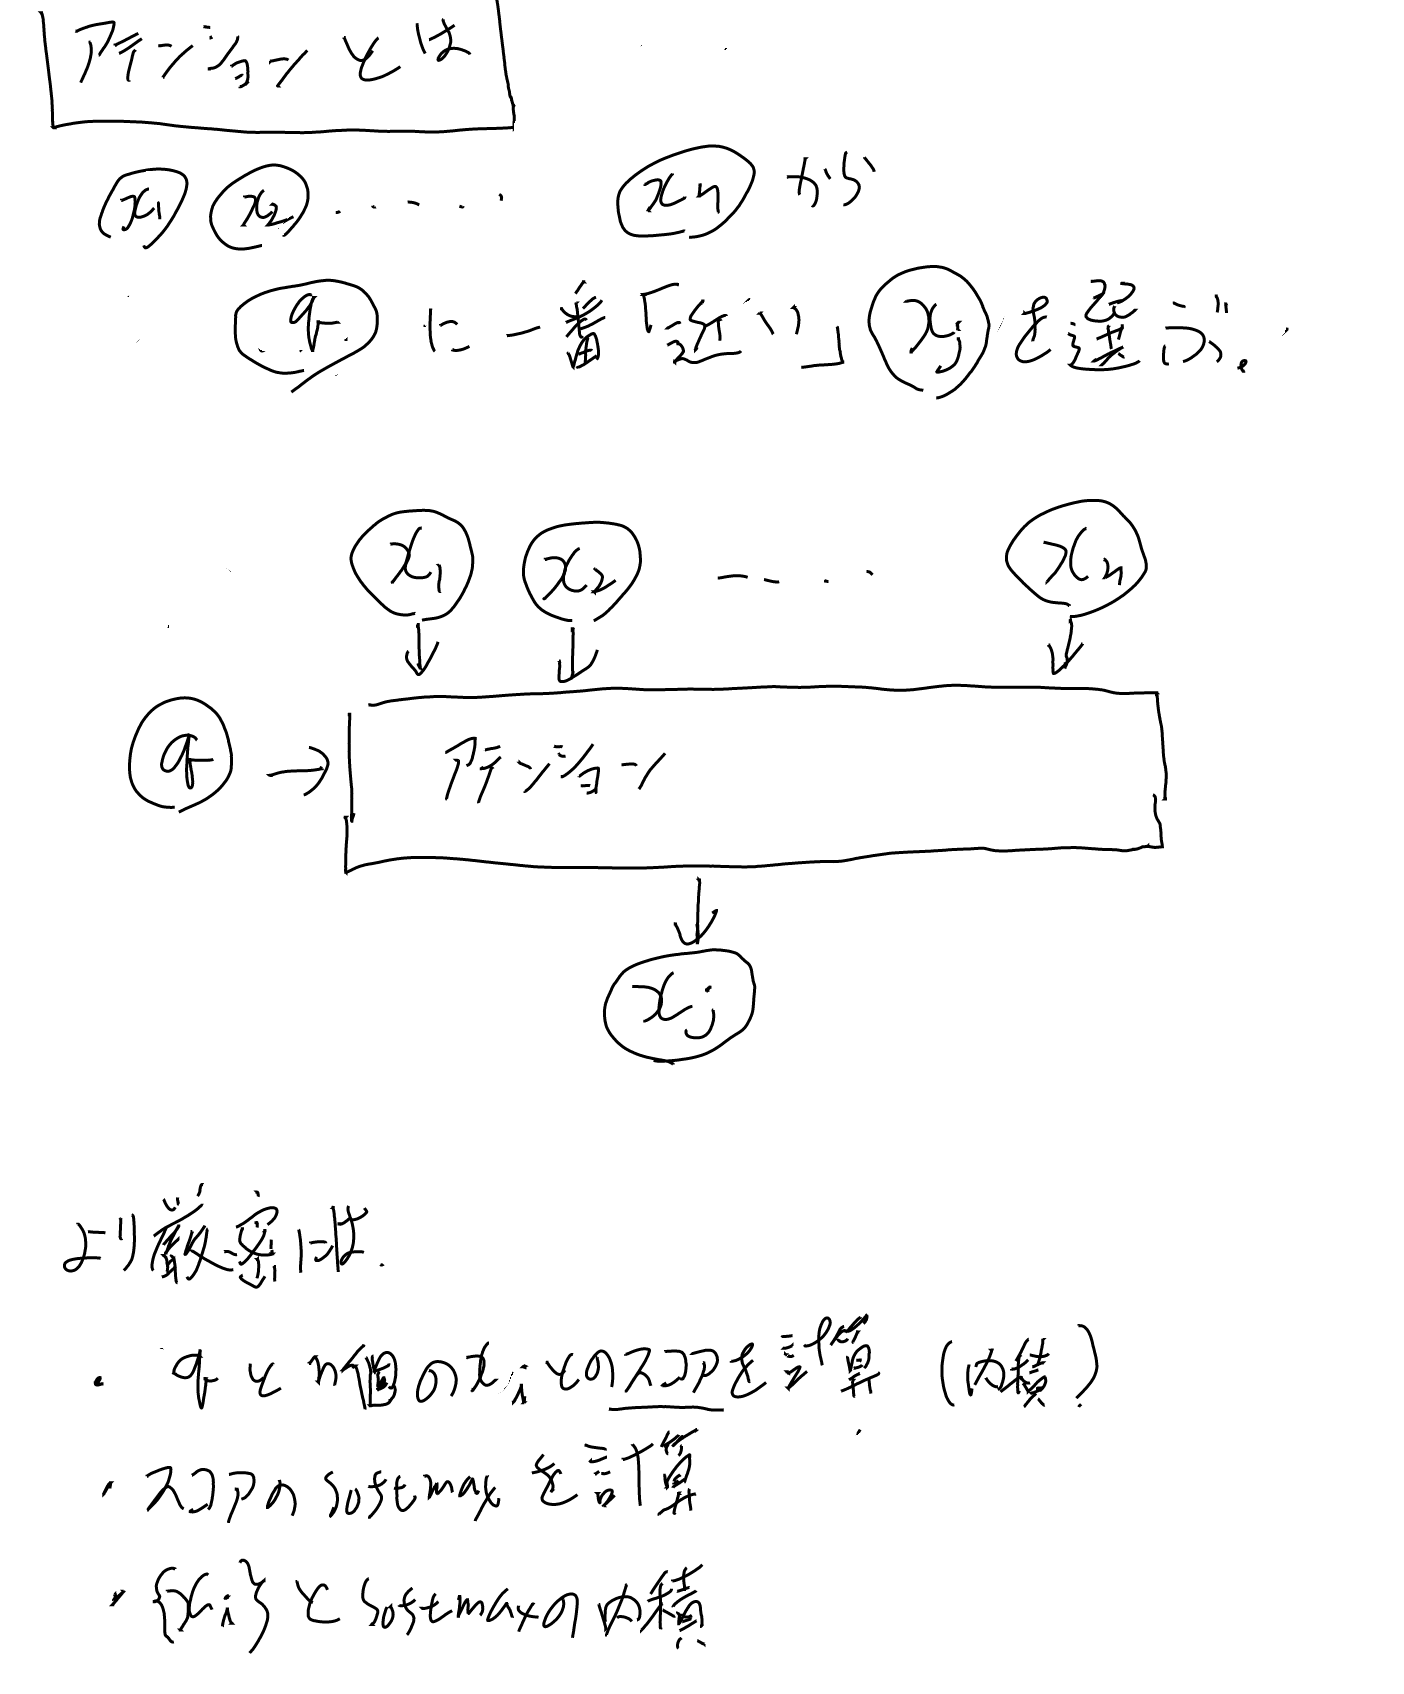 アテンションとは
x1 x2 ・・・・・ xn から
q に一番「近い」 xj を選ぶ.
x1 x2 ・・・・ xn
q → アテンション
xj
より厳密には.
・ qとn個のxiとのスコアを計算 (内積)
・スコアのsoftmaxを計算
・{xi}とsoftmaxの内積